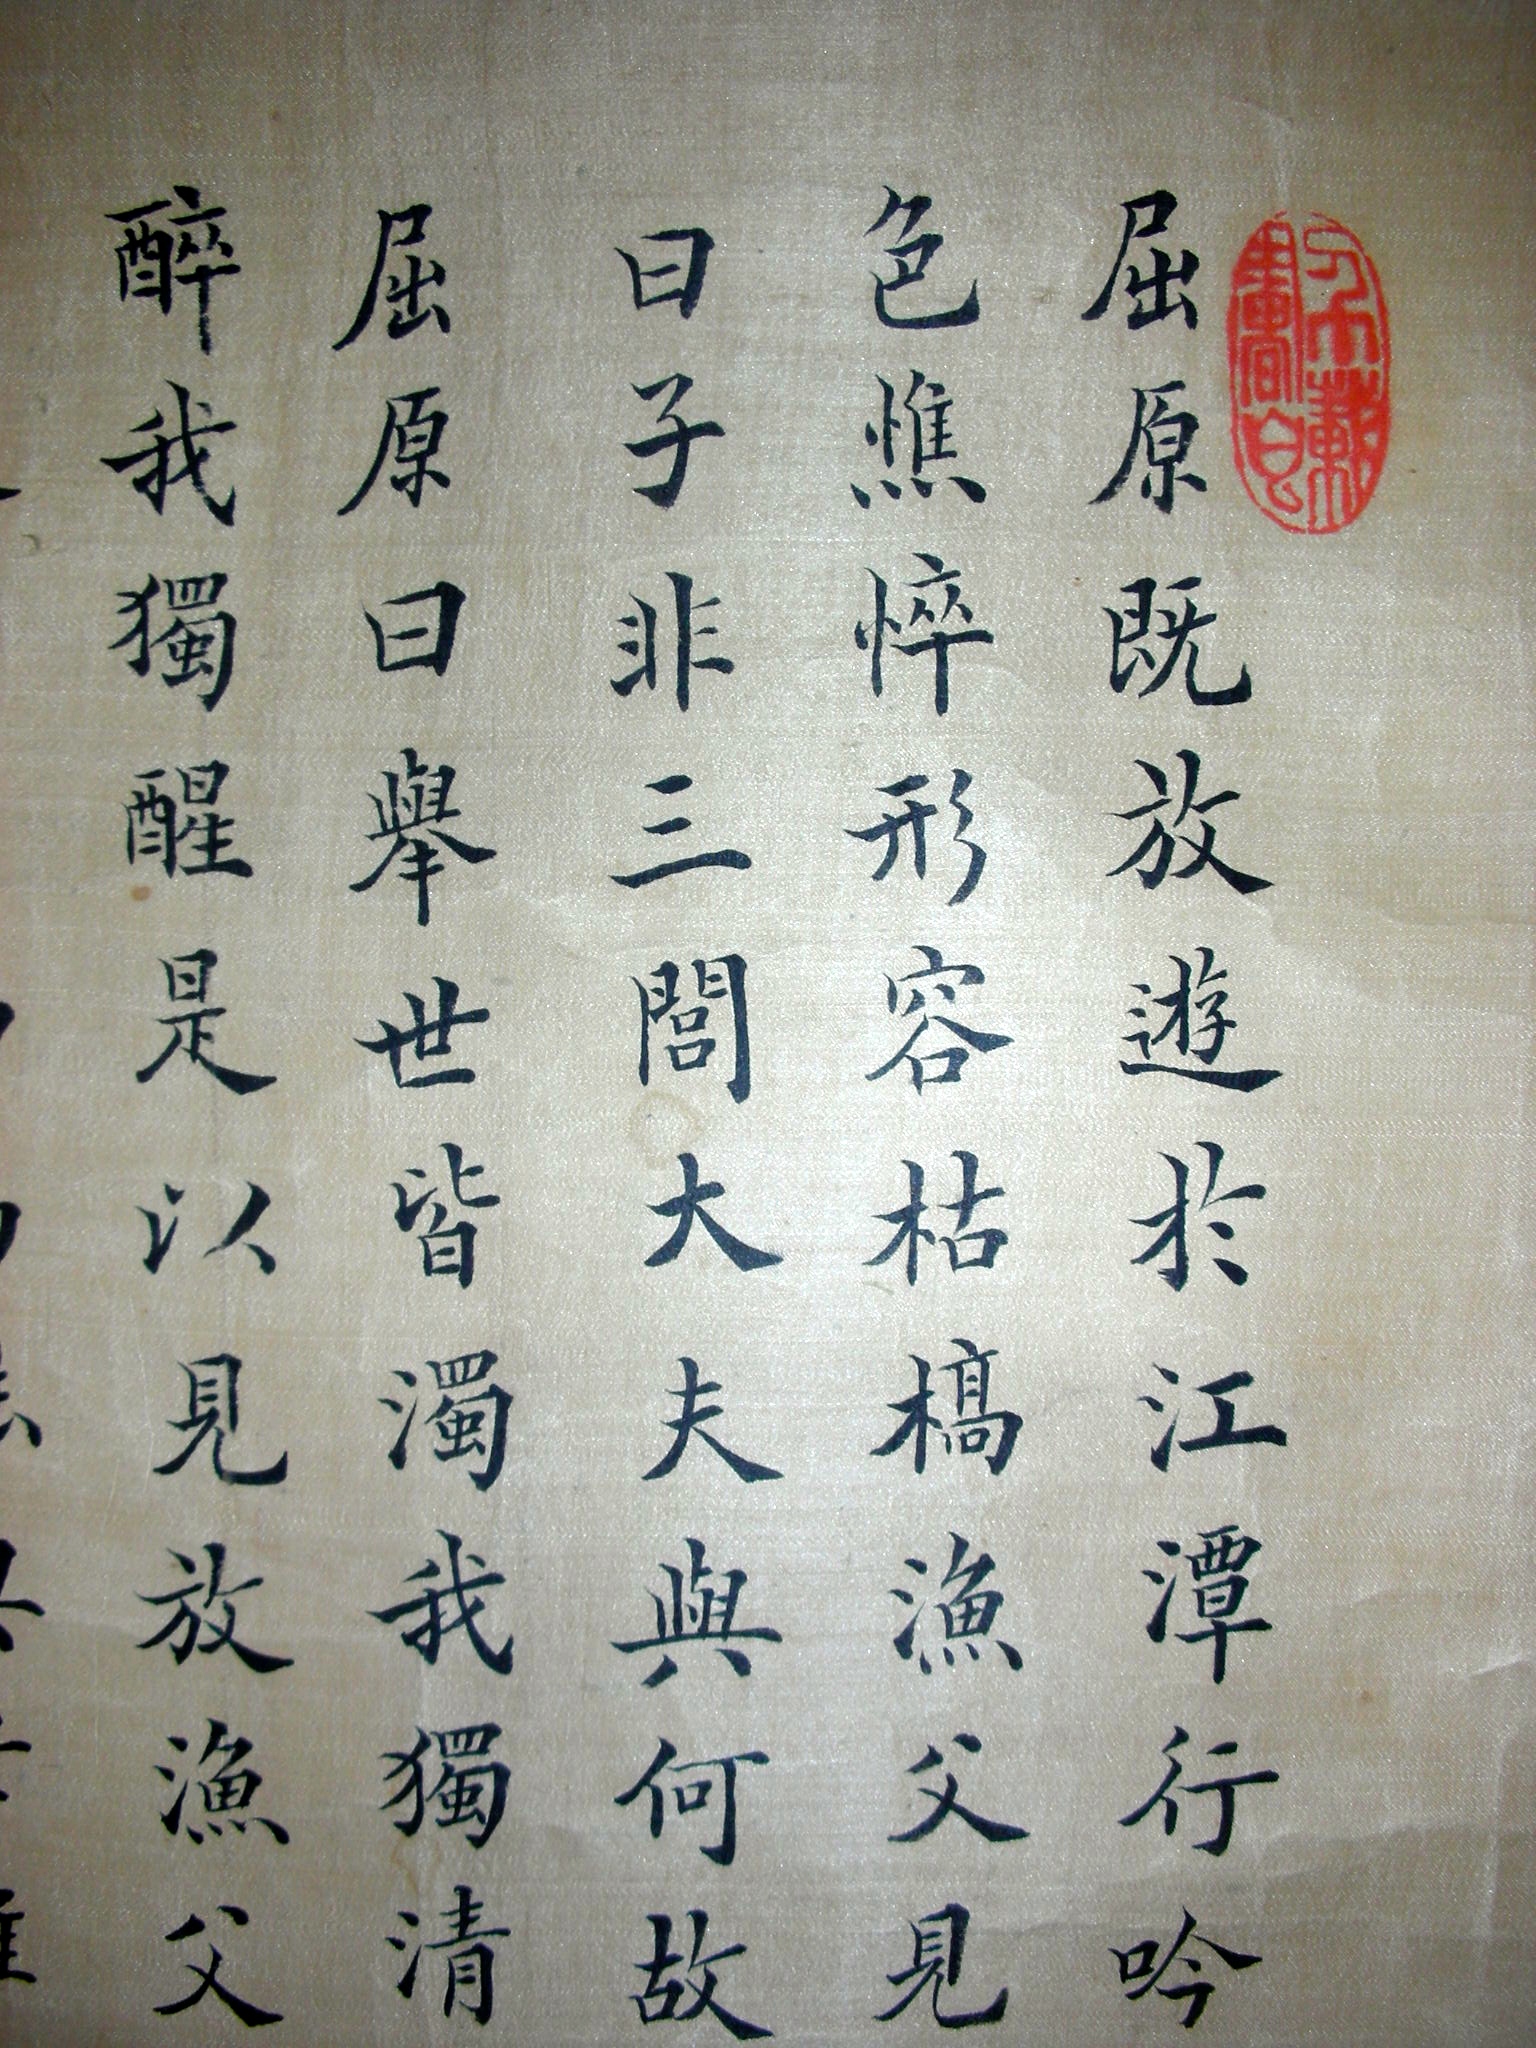 屈原既放遊於江潭行吟
色憔悴形容枯槁漁父見
曰子非三閭大夫與何故
屈原曰舉世皆濁我獨清
醉我獨醒是以見放漁父